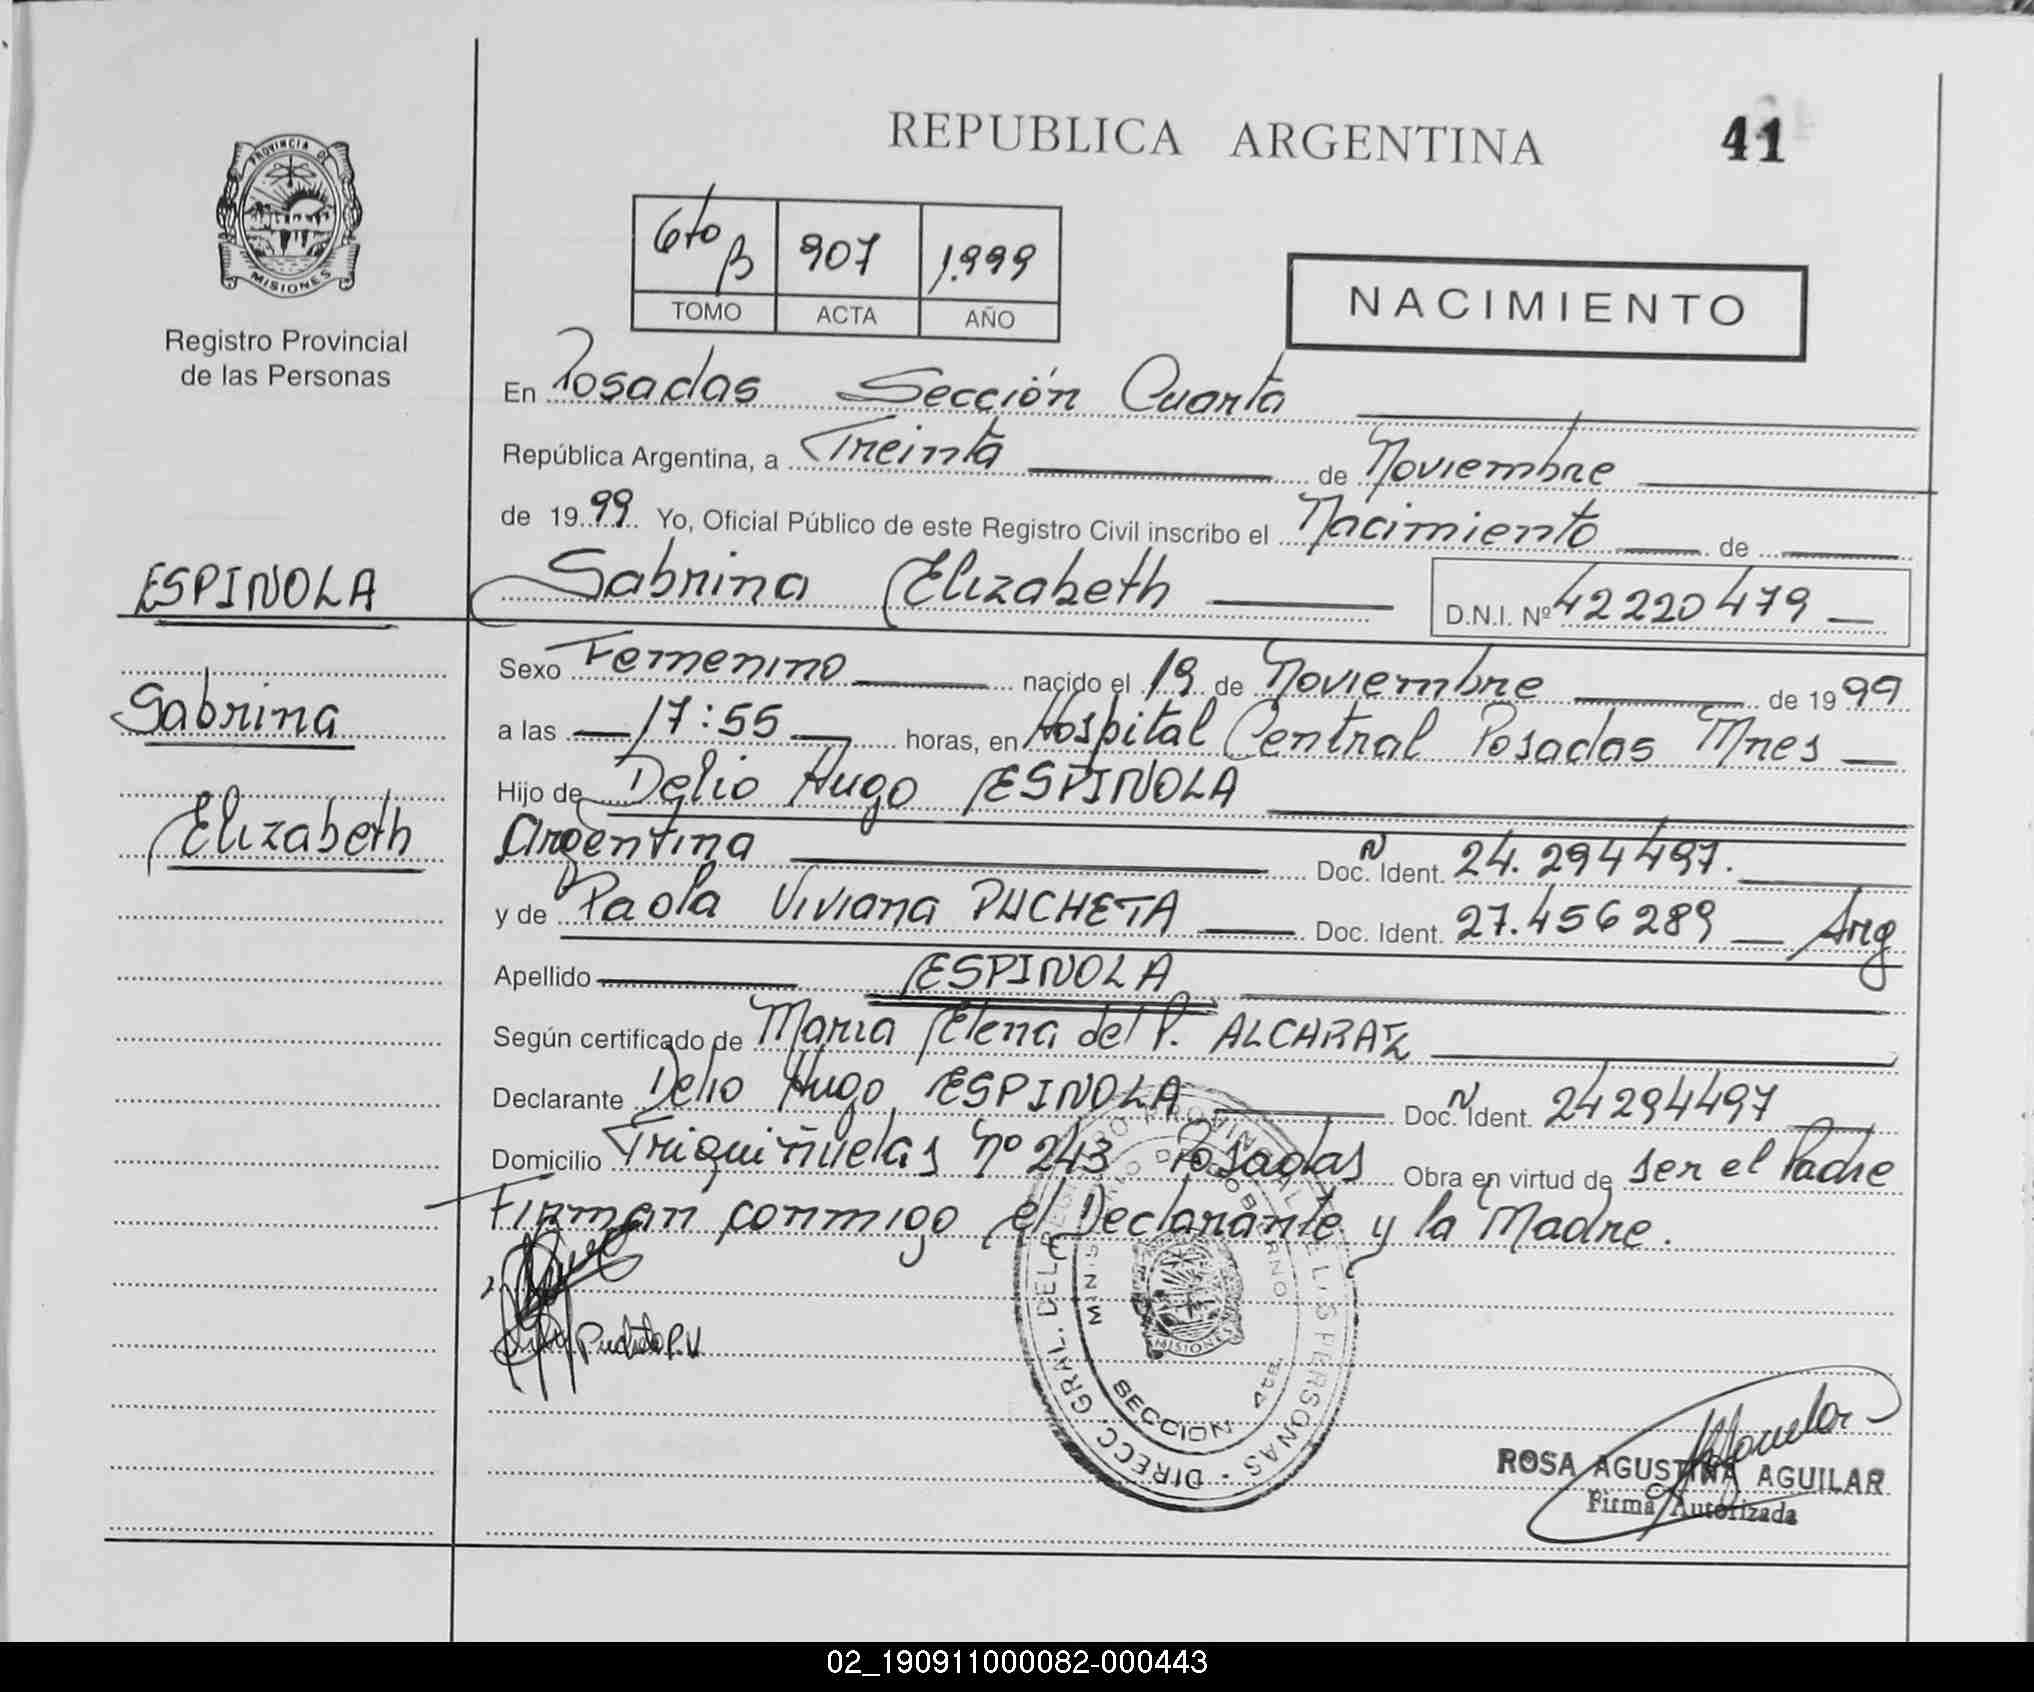 REPUBLICA ARGENTINA
41
PROVINCIA DE
MISIONES
Registro Provincial
de las Personas
6to B 907 1.999
TOMO ACTA AÑO
NACIMIENTO
En Posadas Sección Cuarta
República Argentina, a Treinta de Noviembre
de 1999 Yo, Oficial Público de este Registro Civil inscribo el Nacimiento de
Sabrina Elizabeth D.N.I. Nº 42220479
ESPINOLA
Sabrina
Elizabeth
Sexo Femenino nacido el 19 de Noviembre de 1999
a las 17:55 horas, en Hospital Central Posadas Mnes
Hijo de Delio Hugo ESPINOLA
Argentina Doc. N Ident. 24.294497.
y de Paola Viviana PUCHETA Doc. Ident. 27.456289 Arg
Apellido ESPINOLA
Según certificado de Maria Elena del P. ALCARAZ
Declarante Delio Hugo ESPINOLA Doc. N Ident. 24294497
Domicilio Triquiñuelas nº 243 Posadas Obra en virtud de ser el Padre
Firman conmigo el Declarante y la Madre.
DIRECC. GRAL. DEL REGISTRO PROVINCIAL DE LAS PERSONAS
MINISTERIO DE GOBIERNO
MISIONES
SECCION 4ta
ROSA AGUSTINA AGUILAR
Firma Autorizada
02_190911000082-000443